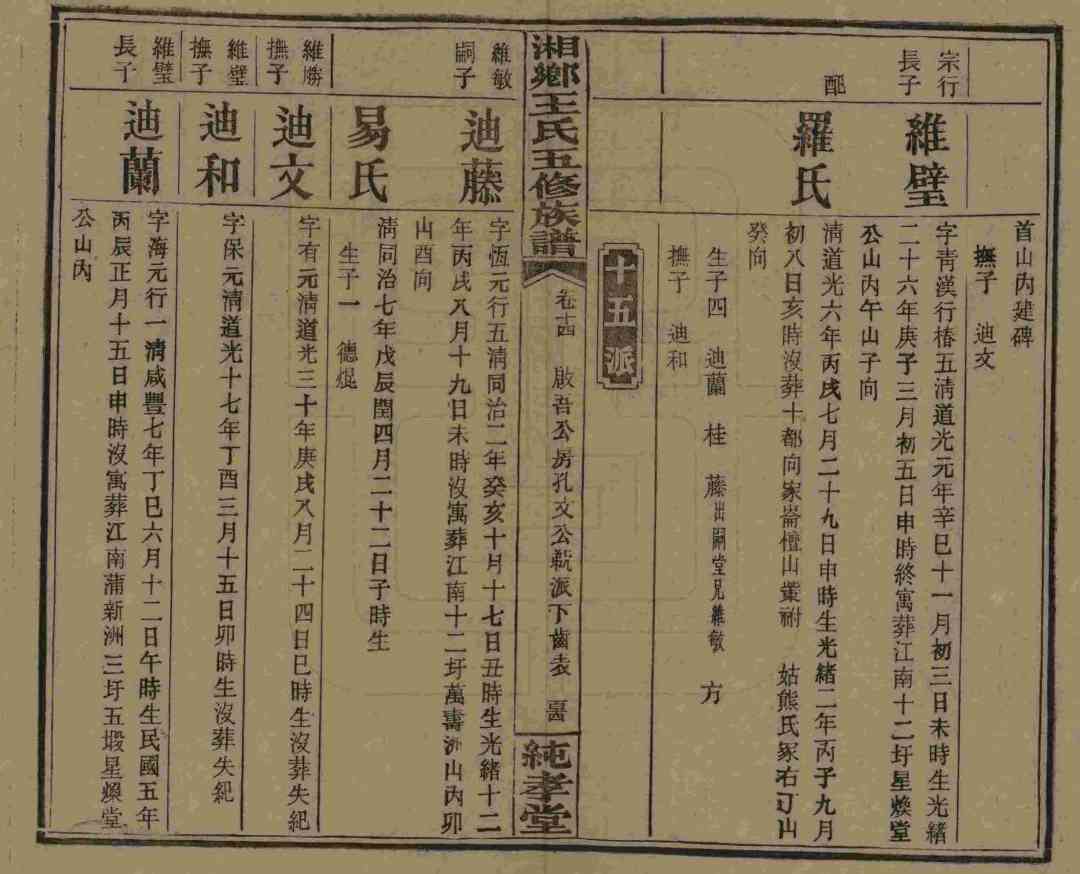 首山內建碑
撫子 迪文
宗行長子
維璧
字青漢行椿五清道光元年辛巳十一月初三日未時生光緒
二十六年庚子三月初五日申時終寓葬江南十二圩星煥堂
公山內午山子向
配
羅氏
清道光六年丙戌七月二十九日申時生光緒二年丙子九月
初八日亥時沒葬十都向家崙檀山叢祔 姑熊氏冢右丁山
癸向
生子四 迪蘭 桂 藤出嗣堂兄維敏 方
撫子 迪和
十五派
湘鄉王氏五修族譜
卷十四 啟吾公房孔文公 派下齒表
純孝堂
維敏嗣子
迪藤
字恆元行五清同治二年癸亥十月十七日丑時生光緒十二
年丙戌八月十九日未時沒寓葬江南十二圩萬壽洲山內卯
山酉向
易氏
清同治七年戊辰閏四月二十二日子時生
生子一 德焜
維勝撫子
迪文
字有元清道光三十年庚戌八月二十四日巳時生沒葬失紀
維璧撫子
迪和
字保元清道光十七年丁酉三月十五日卯時生沒葬失紀
維璧長子
迪蘭
字海元行一清咸豐七年丁巳六月十二日午時生民國五年
丙辰正月十五日申時沒寓葬江南蒲新洲三圩五塅星煥堂
公山內